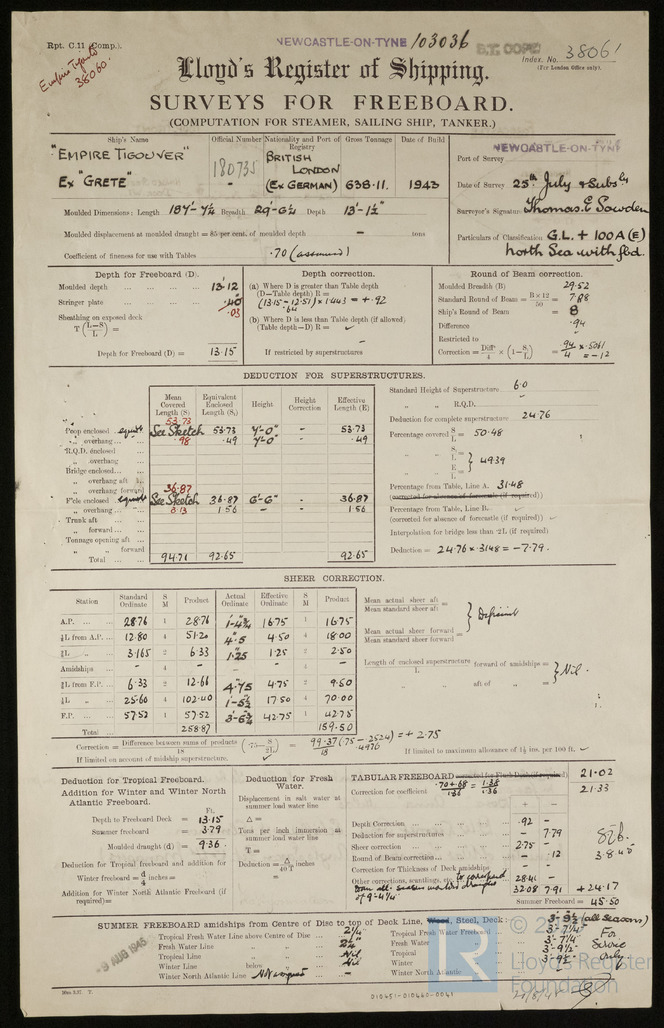 Rpt. C.11 (Comp.).
NEWCASTLE-ON-TYNE 103036
B.T. COPY
Index. No. 38061
(For London Office only).
38060.
Lloyd's Register of Shipping.
SURVEYS FOR FREEBOARD.
(COMPUTATION FOR STEAMER, SAILING SHIP, TANKER.)
Ship's Name Official Number Nationality and Port of Registry Gross Tonnage Date of Build
"EMPIRE TIGOUVER" 180735 BRITISH LONDON
Ex "GRETE" - (EX GERMAN) 638.11. 1943
Port of Survey NEWCASTLE-ON-TYNE
Date of Survey 25th July & Subs ly
Surveyor's Signature Thomas. E Sowden
Particulars of Classification G.L. + 100A (E)
North Sea with fbd.
Moulded Dimensions: Length 187'-7½ Breadth 29'-6½ Depth 13'-1½"
Moulded displacement at moulded draught = 85 per cent. of moulded depth - tons
Coefficient of fineness for use with Tables .70 (assumed)
Depth for Freeboard (D).
Moulded depth 13.12
Stringer plate .40 .03
Sheathing on exposed deck
T(L-S/L) =
Depth for Freeboard (D) = 13.15
Depth correction.
(a) Where D is greater than Table depth
(D—Table depth) R =
(13.15 - 12.51) × 1.443 = + .92
.64
(b) Where D is less than Table depth (if allowed)
(Table depth—D) R = ✓
If restricted by superstructures
Round of Beam correction.
Moulded Breadth (B) 29.52
Standard Round of Beam = B×12/50 = 7.88
Ship's Round of Beam = 8
Difference .94
Restricted to
Correction = Diffce/4 × (1-S₁/L) = .94/4 × .5061 = -.12
DEDUCTION FOR SUPERSTRUCTURES.
Mean Covered Length (S) Equivalent Enclosed Length (S₁) Height Height Correction Effective Length (E)
53.73
Poop enclosed See Sketch 53.73 7'-0" - 53.73
„ overhang .98 .49 7'-0" - .49
R.Q.D. enclosed
„ overhang
Bridge enclosed
„ overhang aft
„ overhang forward
36.87
F'cle enclosed See Sketch 36.87 6'-6" - 36.87
„ overhang 3.13 1.56 - - 1.56
Trunk aft
„ forward
Tonnage opening aft
„ „ forward
Total 94.71 92.65 92.65
Standard Height of Superstructure 6.0
„ „ R.Q.D.
Deduction for complete superstructure 24.76
Percentage covered S/L = 50.48
„ „ S₁/L =
„ „ E/L = } 49.39
Percentage from Table, Line A. 31.48
(corrected for absence of forecastle (if required))
Percentage from Table, Line B.
(corrected for absence of forecastle (if required))
Interpolation for bridge less than ·2L (if required)
Deduction = 24.76 × .3148 = - 7.79.
SHEER CORRECTION.
Station Standard Ordinate S M Product Actual Ordinate Effective Ordinate S M Product
A.P. 28.76 1 28.76 1'-4¾ 16.75 1 16.75
⅙L from A.P. 12.80 4 51.20 4".5 4.50 4 18.00
⅓L „ 3.165 2 6.33 1".25 1.25 2 2.50
Amidships - 4 - - 4 -
⅓L from F.P. 6.33 2 12.66 4.75 4.75 2 9.50
⅙L „ 25.60 4 102.40 1'-5½ 17.50 4 70.00
F.P. 57.52 1 57.52 3'-6¾ 42.75 1 42.75
Total 258.87 159.50
Mean actual sheer aft =
Mean standard sheer aft
Mean actual sheer forward =
Mean standard sheer forward
} Deficient
Length of enclosed superstructure forward of amidships =
L
„ aft of „ =
} Nil.
Correction = Difference between sums of products/18 (·75-S/2L) = 99.37/18 (.75 - .2524) = + 2.75
.4976
If limited on account of midship superstructure.
If limited to maximum allowance of 1½ ins. per 100 ft. ✓
Deduction for Tropical Freeboard.
Addition for Winter and Winter North Atlantic Freeboard.
Ft.
Depth to Freeboard Deck = 13.15
Summer freeboard = 3.79
Moulded draught (d) = 9.36
Deduction for Tropical freeboard and addition for
Winter freeboard = d/4 inches =
Addition for Winter North Atlantic Freeboard (if required) =
Deduction for Fresh Water.
Displacement in salt water at summer load water line
Δ =
Tons per inch immersion at summer load water line
T =
Deduction = Δ/40T inches =
TABULAR FREEBOARD corrected for Flush Deck (if required) 21.02
Correction for coefficient .70+.68/1.36 = 1.38/1.36 21.33
+ -
Depth Correction .92 -
Deduction for superstructures - 7.79
Sheer correction 2.75 -
Round of Beam correction - .12
Correction for Thickness of Deck amidships
Other corrections, scantlings, etc. to correspond 28.41 -
all seasons moulded draught
of 9'-4¼" 32.08 7.91 + 24.17
Summer Freeboard = 45.50
3.8.45
SUMMER FREEBOARD amidships from Centre of Disc to top of Deck Line, Wood, Steel, Deck: 3'-9½" (all seasons)
Tropical Fresh Water Line above Centre of Disc 2¼"
Fresh Water Line „ „ 2¼"
Tropical Line „ „ Nil
Winter Line below „ Nil
Winter North Atlantic Line „ „ Not required
Tropical Fresh Water Freeboard 3'-7¼"
Fresh Water „ 3'-7¼"
Tropical „ 3'-9½"
Winter „ 3'-9½"
Winter North Atlantic „ -
For Service only.
9 AUG 1945
Lloyd's Register
Foundation
010451-010460-0041